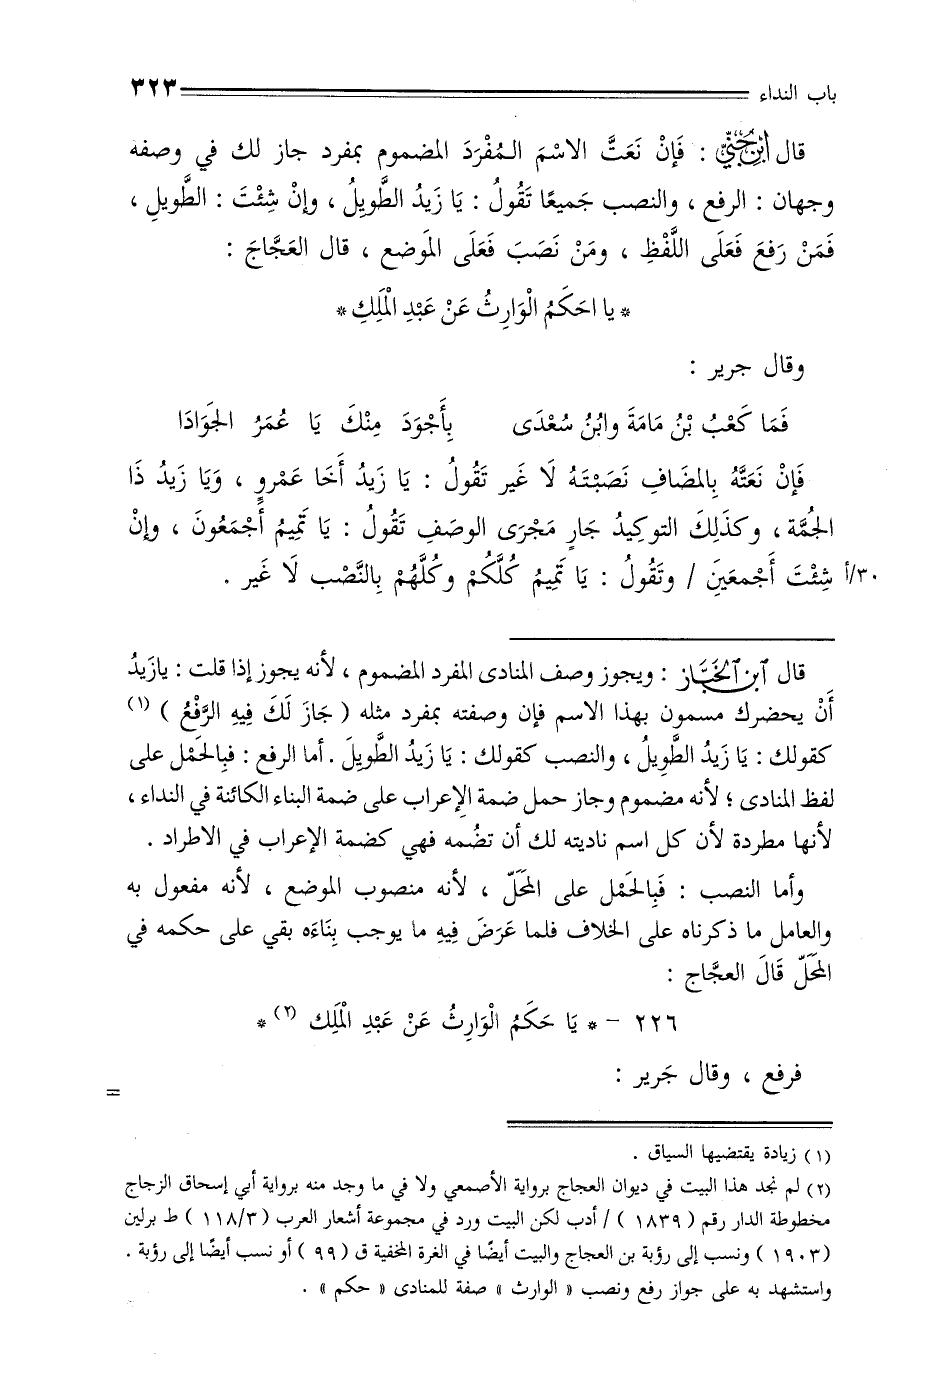 باب النداء ٣٢٣
قال ابن جني : فَإِنْ نَعَتَّ الاسْمَ المُفْرَدَ المضموم بمفرد جاز لك في وصفه
وجهان : الرفع ، والنصب جَميعًا تَقُولُ : يَا زَيدُ الطَّويلُ ، وإنْ شِئْتَ : الطَّويلِ ،
فَمَنْ رَفعَ فَعَلَى اللَّفْظِ ، ومَنْ نَصَبَ فَعَلَى المَوضع ، قال العَجَّاجَ :
* يا احَكَمُ الْوَارِثُ عَنْ عَبْدِ الْمَلِكِ *
وقال جرير :
فَمَا كَعْبُ بْنُ مَامَةَ وابْنُ سُعْدَى بِأَجْوَدَ مِنْكَ يَا عُمَرُ الجَوَادَا
فَإِنْ نَعَتَّهُ بِالمضَافِ نَصَبْتَهُ لَا غَير تَقُولُ : يَا زَيدُ أَخَا عَمْرٍو ، وَيَا زَيدُ ذَا
الجُمَّة ، وكَذَلِكَ التوكِيدُ جَارٍ مَجْرَى الوصَفِ تَقُولُ : يَا تَمِيمُ أَجْمَعُونَ ، وإنْ
٣٠/أ شِئْتَ أَجْمعَينَ / وتَقُولُ : يَا تَمِيمُ كُلَّكُمْ وكُلَّهُمْ بِالنَّصْب لَا غَير .
قال ابن الخباز : ويجوز وصف المنادى المفرد المضموم ، لأنه يجوز إذا قلت : يازَيدُ
أَنْ يحضرك مسمون بهذا الاسم فإن وصفته بمفرد مثله ( جَازَ لَكَ فِيهِ الرَّفْعُ ) (١)
كقولك : يَا زَيدُ الطَّوِيلُ ، والنصب كقولك : يَا زَيدُ الطَّوِيلَ . أما الرفع : فبِالحَمْل على
لفظ المنادى ؛ لأنه مضموم وجاز حمل ضمة الإعراب على ضمة البناء الكائنة في النداء ،
لأنها مطردة لأن كل اسم ناديته لك أن تضُمه فهي كضمة الإعراب في الاطراد .
وأما النصب : فَبِالحَمْل على المحَلّ ، لأنه منصوب الموضع ، لأنه مفعول به
والعامل ما ذكرناه على الخلاف فلما عَرَضَ فِيهِ ما يوجب بِنَاءَه بقي على حكمه في
المحَلّ قَالَ العجَّاج :
٢٢٦ - * يَا حَكَمُ الْوَارِثُ عَنْ عَبْدِ الْمَلِك (٢) *
فرفع ، وقال جَرير :
=
(١) زيادة يقتضيها السياق .
(٢) لم نجد هذا البيت في ديوان العجاج برواية الأصمعي ولا في ما وجد منه برواية أبي إسحاق الزجاج
مخطوطة الدار رقم ( ١٨٣٩ ) / أدب لكن البيت ورد في مجموعة أشعار العرب (١١٨/٣ ) ط برلين
(١٩٠٣ ) ونسب إلى رؤبة بن العجاج والبيت أيضًا في الغرة المخفية ق (٩٩ ) أو نسب أيضًا إلى رؤبة .
واستشهد به على جواز رفع ونصب « الوارث » صفة للمنادى « حكم » .